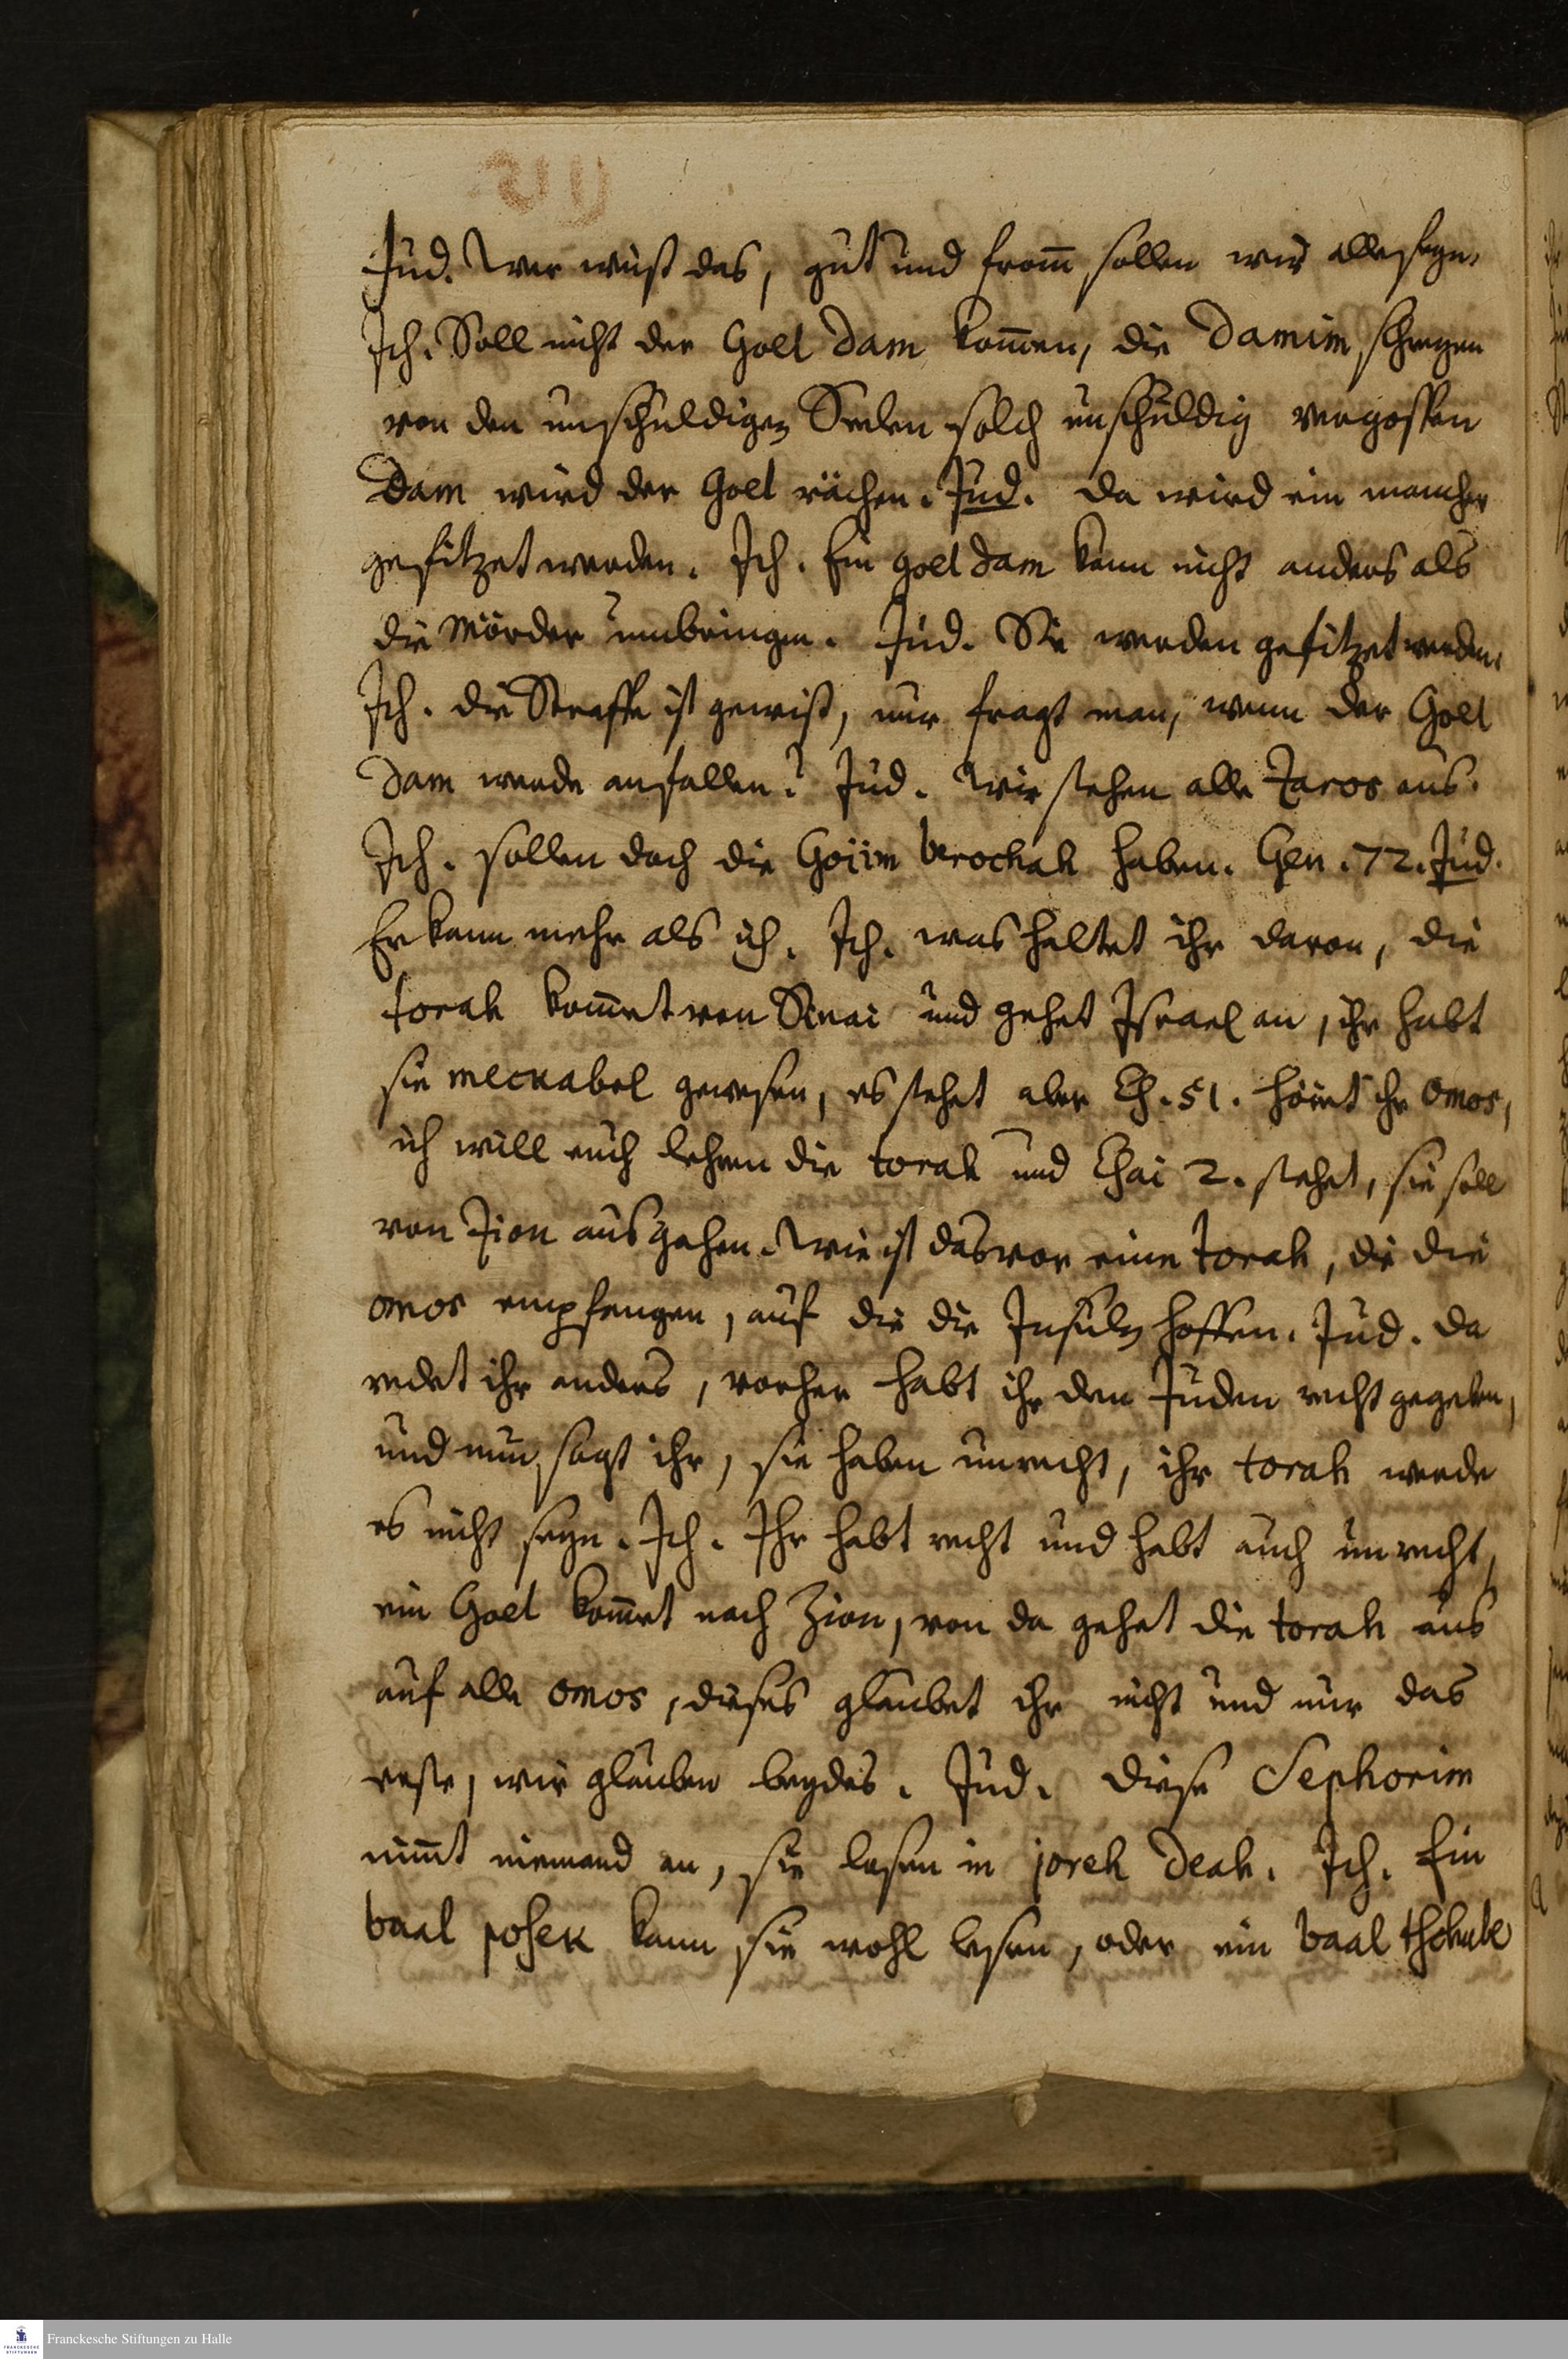 Jud. Wer weist das, gut und from̄ sollen wir alle seyn.
Ich. Soll nicht der Goel dam kom̄en, die damim schreyen
von den unschuldigen Seelen solch unschuldig vergossen
Dam wird der Goel rächen. Jud. da wird ein mancher
gefitzet werden. Ich. Ein goel dam kann nicht anders als
die Mörder umbringen. Jud. Sie werden gefitzet werden.
Ich. die Straffe ist gewiß, nur fragt man, wenn der Goel
dam werde anfallen? Jud. Wir stehen alle Zaros aus.
Ich. sollen doch die Goiim berochah haben. Gen. 72. Jud.
Er kann mehr als ich. Ich. was haltet ihr davon, die
torah kom̄et von Sinai und gehet Israel an, ihr habt
sie meckabel gewesen, es stehet aber Eh. 51. höret ihr omos,
ich will euch lehren die torah und Ehai 2. stehet, sie soll
von Zion ausgehen. Wie ist das vor eine torah, die die
omos empfangen, auf die die Insuln hoffen. Jud. da
redet ihr anders, vorher habt ihr den Juden recht gegeben,
und nun sagt ihr, sie haben unrecht, ihr torah werde
es nicht seyn. Ich. Ihr habt recht und habt auch unrecht,
ein Goel kom̄et nach Zion, von da gehet die torah aus
auf alle omos, dieses glaubet ihr nicht und nur das
erste, wir glauben beydes. Jud. diese Sephorim
nim̄t niemand an, sie lesen in joreh deah. Ich. Ein
baal posek kann sie wohl lesen, oder ein baal thchube
Franckesche Stiftungen zu Halle